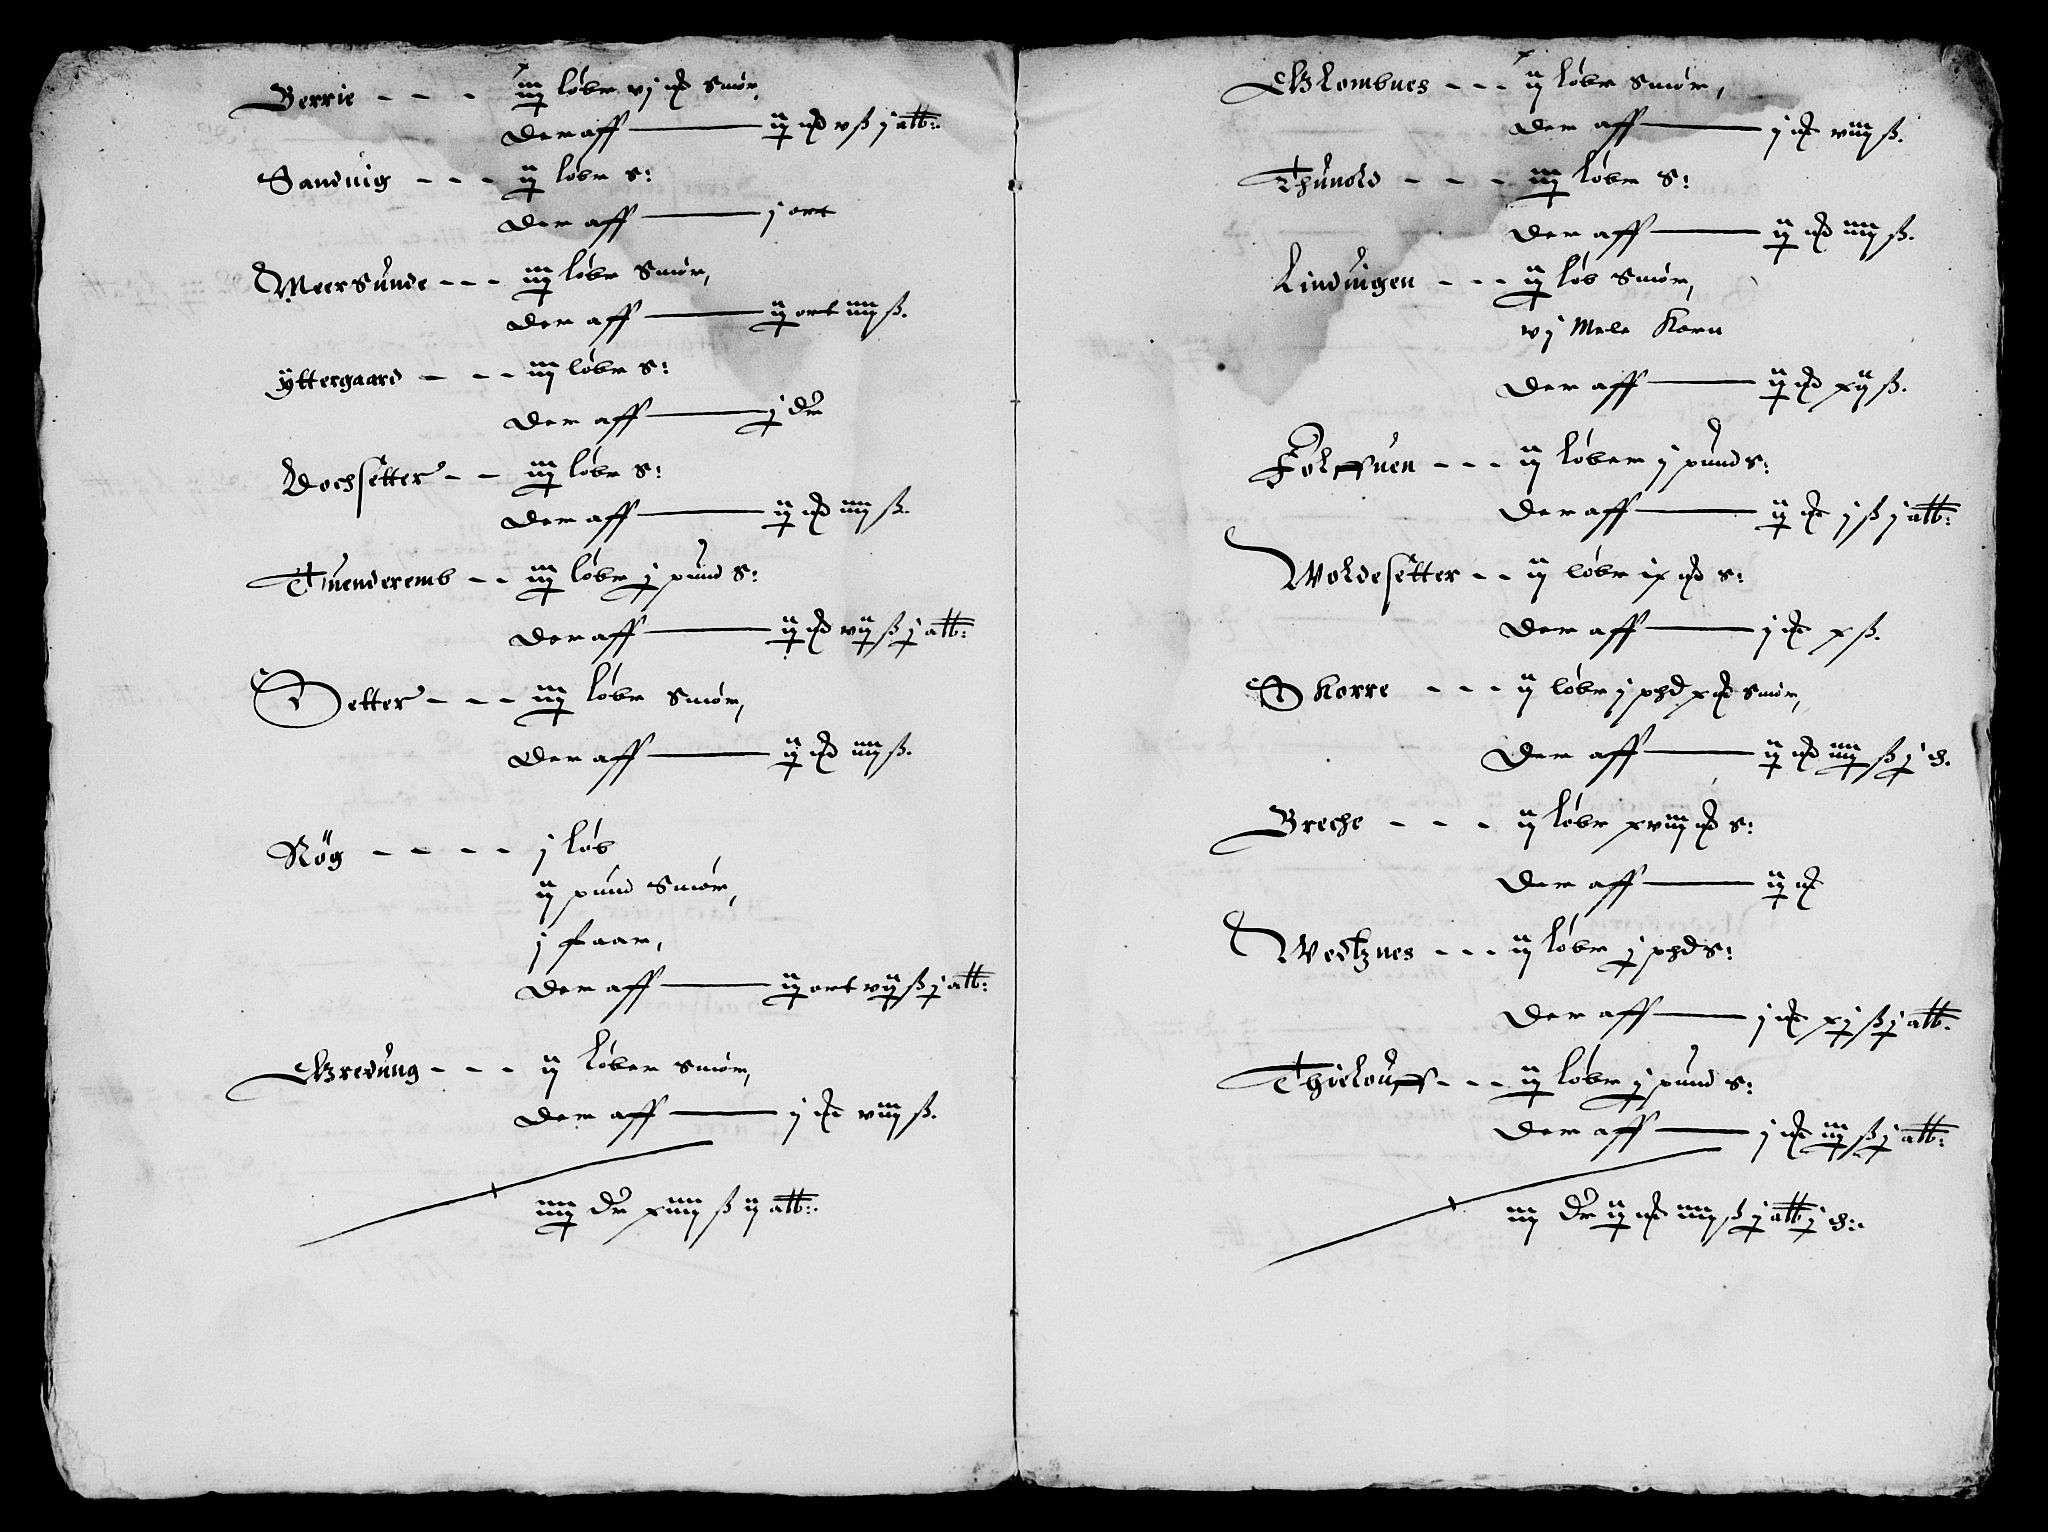 Berrie - - - iij løbr vj mk Smør,
Der aff ij mk v ß j alb:
Sanduig - - - ij løbr S:
Der aff j ort
Meersunde - - - iij løbr Smør,
Der aff ij ort iiij ß.
Yttergaard - - - iij løbr S:
Der aff j dr
Vochsetter - - iij løbr S:
Der aff ij mk iiij ß.
Tuenderemb - - iij løbr j pund S:
Der aff ij mk vij ß j alb:
Setter - - - iij løbr Smør,
Der aff ij mk iiij ß.
Nög - - - - j løb
ij pund Smør,
j faar,
Der aff ij ort vij ß j alb:
Gredung - - - ij løber Smør,
Der aff j mk viij ß.
iiij dr xiiij ß ij alb:
Glombnes - - - ij løbr Smør,
Der aff j mk viij ß.
Thunold - - - iiij løbr S:
Der aff ij mk iiij ß.
Linduigen - - - ij løb Smør,
vj Mele Korn
Der aff ij mk xij ß.
Folffuen - - - ij løber j pund S:
Der aff ij mk j ß j alb:
Woldesetter - - ij løbr ix mk S:
Der aff j mk x ß.
Skorre - - - ij løbr j phd x mk Smør,
Der aff ij mk iiij ß j d.
Breche - - - ij løbr xviij mk S:
Der aff ij mk
Wedtznes - - - ij løbr j phd S:
Der aff j mk xj ß j alb.
Thielouff - - - ij løbr j pund S:
Der aff j mk iij ß j alb:
iiij dr ij mk iiij ß j alb j d: